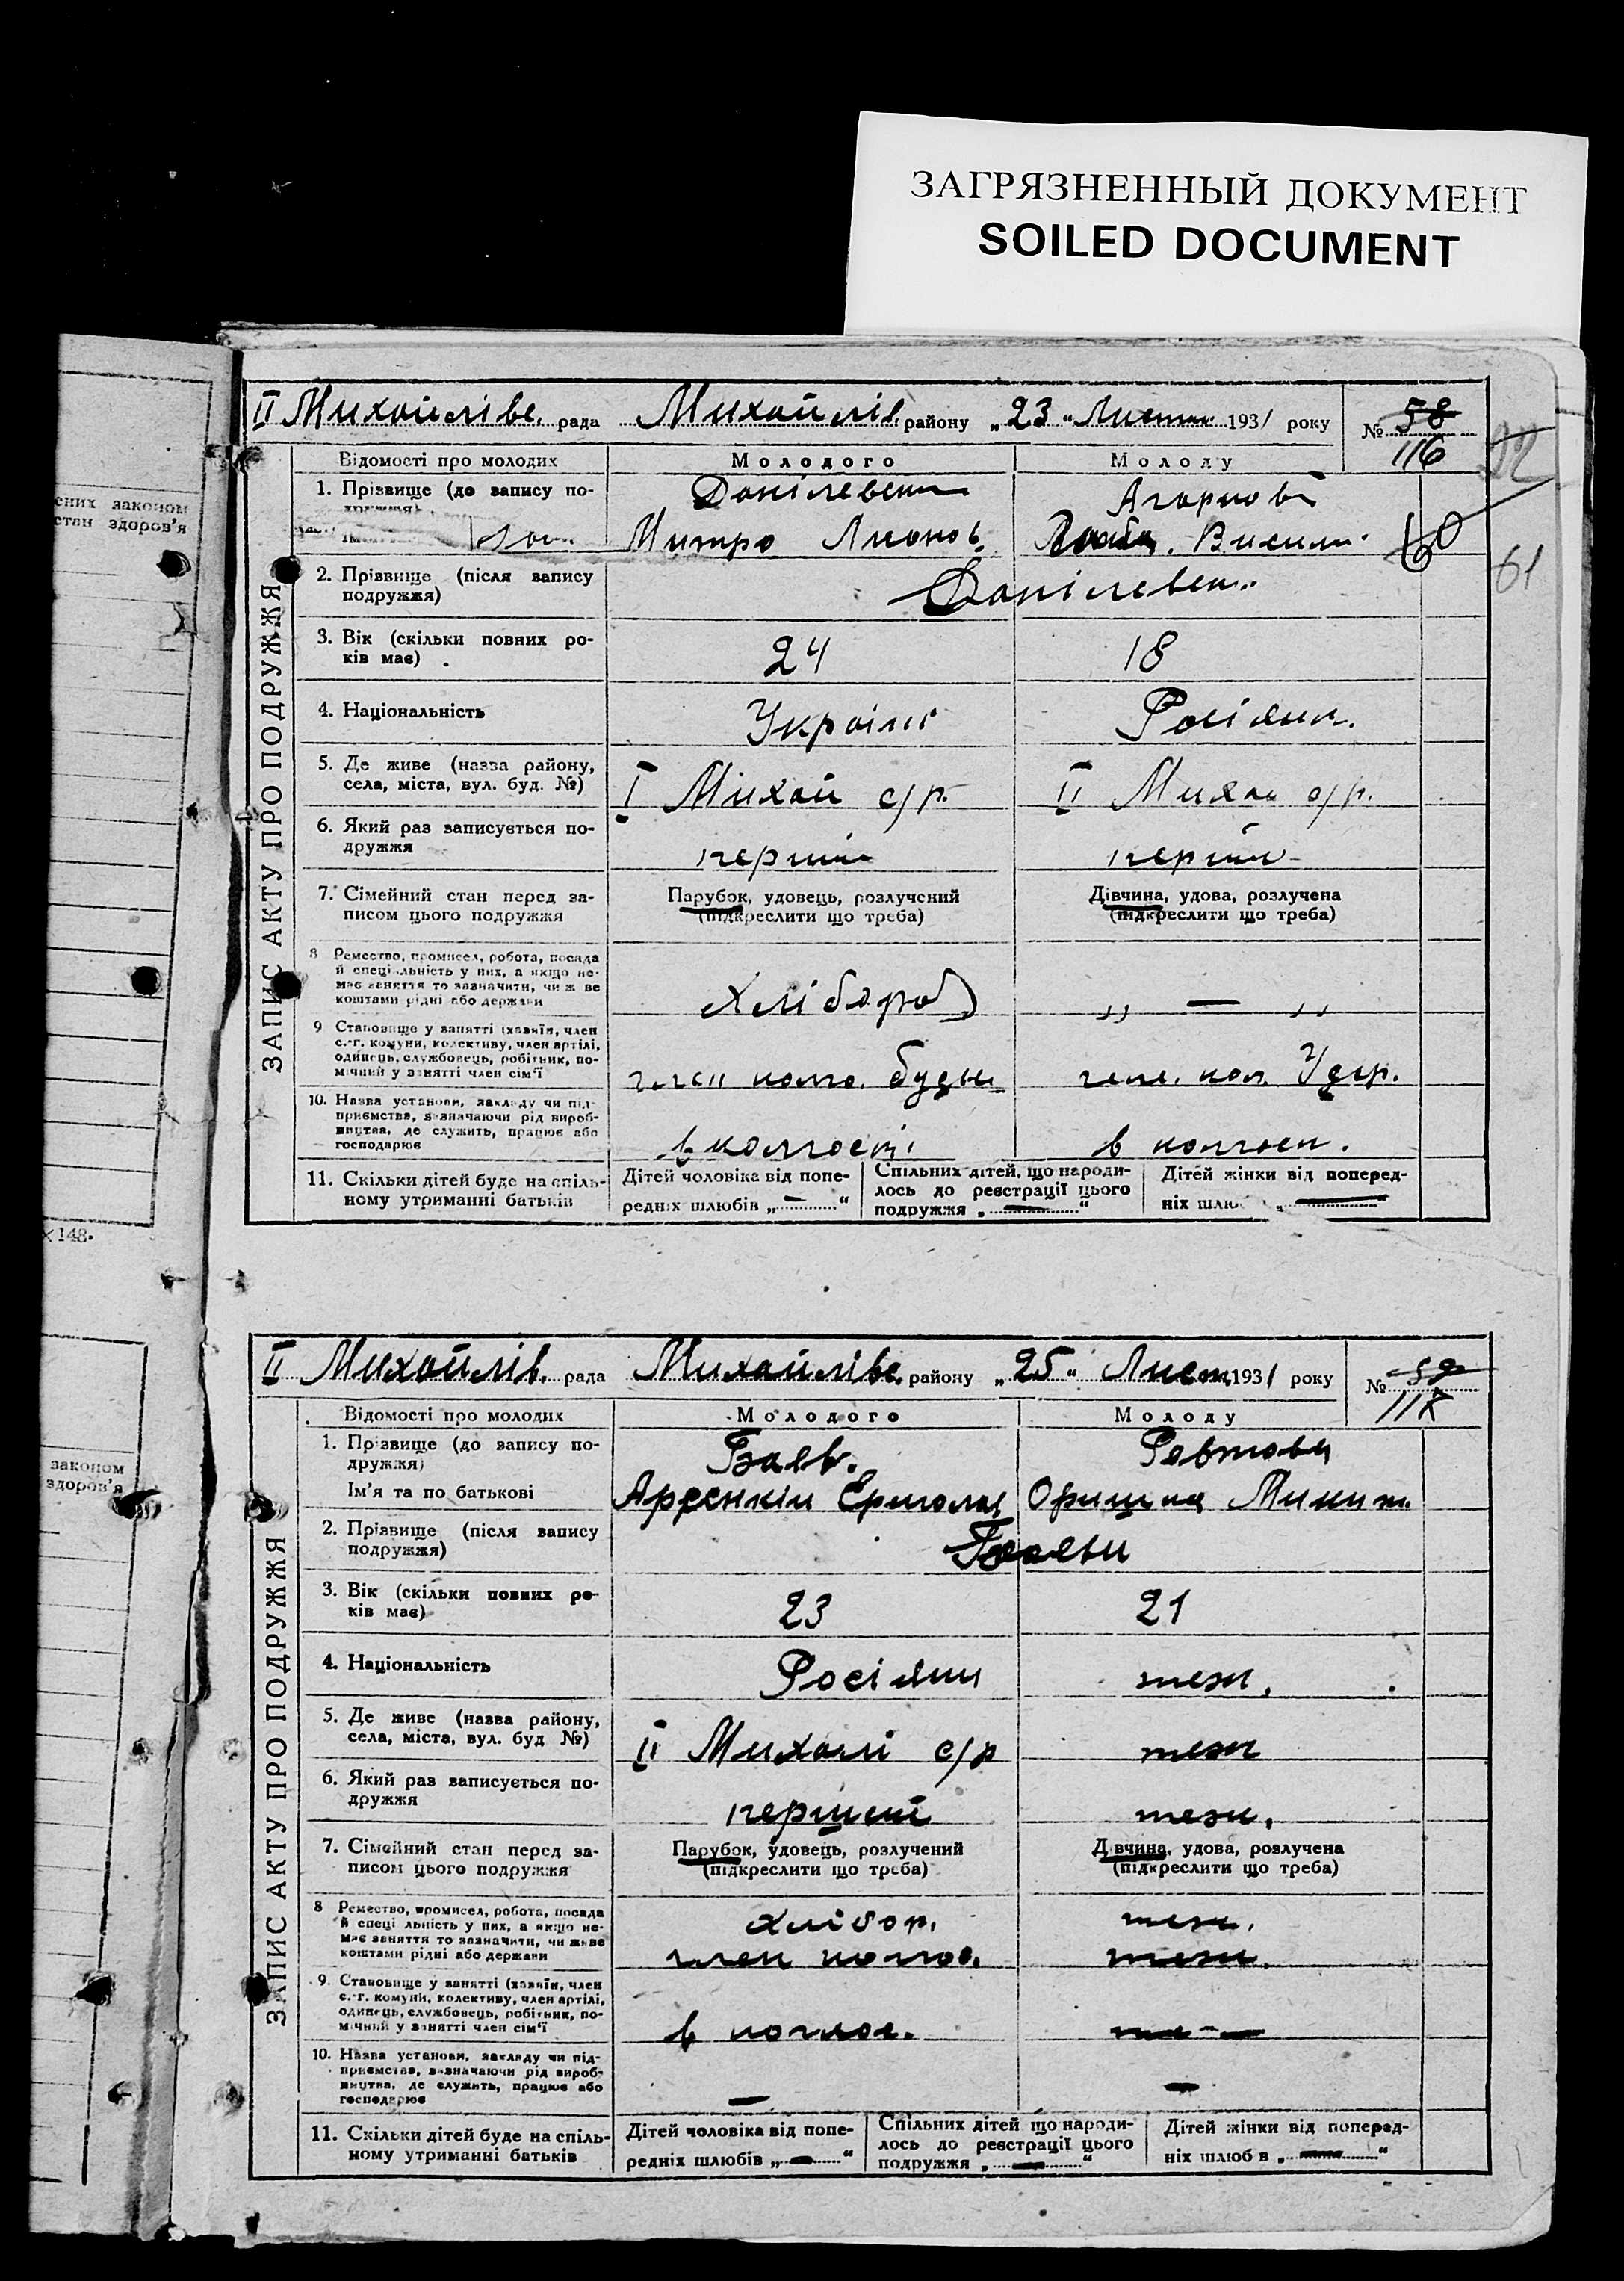 ЗАГРЯЗНЕННЫЙ ДОКУМЕНТ
SOILED DOCUMENT
ених законом
стан здоров'я
148.
законом
здоров'я
ЗАПИС АКТУ ПРО ПОДРУЖЖЯ
II Михайлівс. рада Михайлів. району „23" Листоп 1931 року № 58
116
22
Відомості про молодих Молодого Молоду
1. Прізвище (до запису по- Данілевськ
дружжя)
Митро Леонов. Васил.
60
61
2. Прізвище (після запису
подружжя) Данілевськ.
3. Вік (скільки повних ро-
ків має) 24 18
4. Національність Україн Росіянк.
5. Де живе (назва району,
села, міста, вул. буд. №) I Михай с/р. II Михай с/р.
6. Який раз записується по-
дружжя перший перший
7. Сімейний стан перед за- Парубок, удовець, розлучений Дівчина, удова, розлучена
писом цього подружжя (підкреслити що треба) (підкреслити що треба)
8 Ремество, промисел, робота, посада
й спеціальність у них, а якщо не-
має заняття то зазначити, чи ж ве
коштами рідні або держави Хлібороб „ — „
9 Становище у занятті (хазяїн, член
с.-г. комуни, колективу, член артілі,
одинець, службовець, робітник, по-
мічний у занятті член сім'ї член колго. член. кол. Удар.
10. Назва установи, закладу чи під-
приємства, зазначаючи рід вироб-
ництва, де служить, працює або
господарює в колгоспі в колгосп.
11. Скільки дітей буде на спіль- Дітей чоловіка від попе- Спільних дітей, що народи- Дітей жінки від поперед-
ному утриманні батьків редніх шлюбів „—" лось до реєстрації цього ніх шлю „—"
подружжя „—"
ЗАПИС АКТУ ПРО ПОДРУЖЖЯ
II Михайлів. рада Михайлівс. району „25" Лист. 1931 року № 59
117
Відомості про молодих Молодого Молоду
1. Прізвище (до запису по-
дружжя) Баєв.
Ім'я та по батькові Арсенкій Єрмолай Оришка Микит.
2. Прізвище (після запису
подружжя) Баєви
3. Вік (скільки повних ро-
ків має) 23 21
4. Національність Росіяни теж.
5. Де живе (назва району,
села, міста, вул. буд №) II Михайлі с/р теж
6. Який раз записується по-
дружжя перший теж.
7. Сімейний стан перед за- Парубок, удовець, розлучений Дівчина, удова, розлучена
писом цього подружжя (підкреслити що треба) (підкреслити що треба)
8 Ремество, промисел, робота, посада хлібор. теж.
й спеціальність у них, а якщо не-
має заняття то зазначити, чи живе
коштами рідні або держави член колгос. теж.
9. Становище у занятті (хазяїн, член
с.-г. комуни, колективу, член артілі,
одинець, службовець, робітник, по-
мічний у занятті член сім'ї в колгос.
10. Назва установи, закладу чи під-
приємства, зазначаючи рід вироб-
ництва, де служить, працює або
господарює — —
11. Скільки дітей буде на спіль- Дітей чоловіка від попе- Спільних дітей що народи- Дітей жінки від поперед-
ному утриманні батьків редніх шлюбів „—" лось до реєстрації цього ніх шлюбів „—"
подружжя „—"